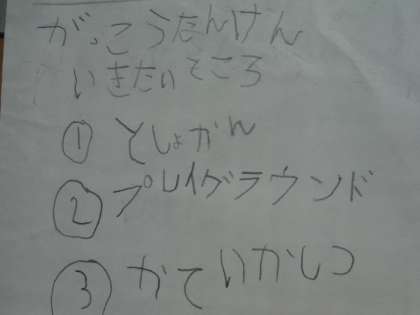 がっこうたんけん
いきたいところ
① としょかん
② プレイグラウンド
③ かていかしつ